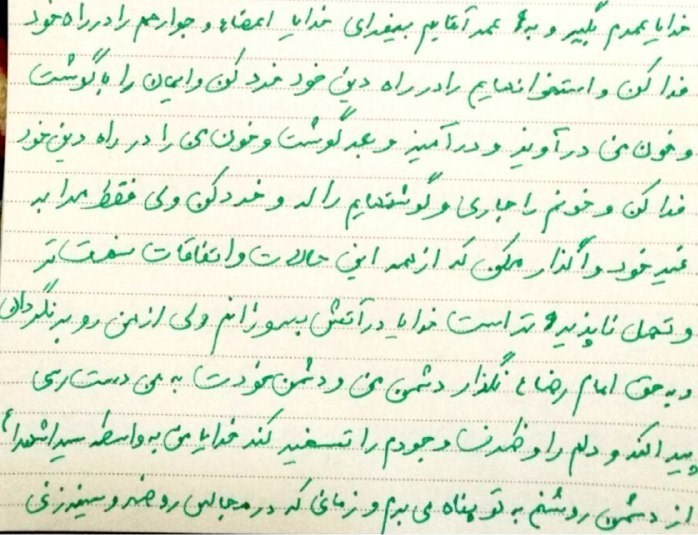 خدایا عمرم بگیر و به عمر آقایم بیفزای خدایا اعضاء و جوارحم را در راه خود
فدا کن و استخوانهایم را در راه دین خود خرد کن و ایمان را با گوشت
و خون من در آویز و در آمیز و بعد گوشت و خون من را در راه دین خود
فدا کن و خونم را جاری و گوشتهایم را له و خرد کن ولی فقط مرا به
غیر خود واگذار مکن که از همه این حالات و اتفاقات سخت تر
و تحمل ناپذیر تر است خدایا در آتش بسوزانم ولی از من رو بر نگردان
و به حق امام رضا ع نگذار دشمن من و دشمن خودت به من دست رسی
پیدا کند و دلم را و مملکت وجودم را تسخیر کند خدایا من به واسطه سید الشهداء ع
از دشمن روشنم به تو پناه می برم و زمانی که در مجالس روضه و سینه زنی